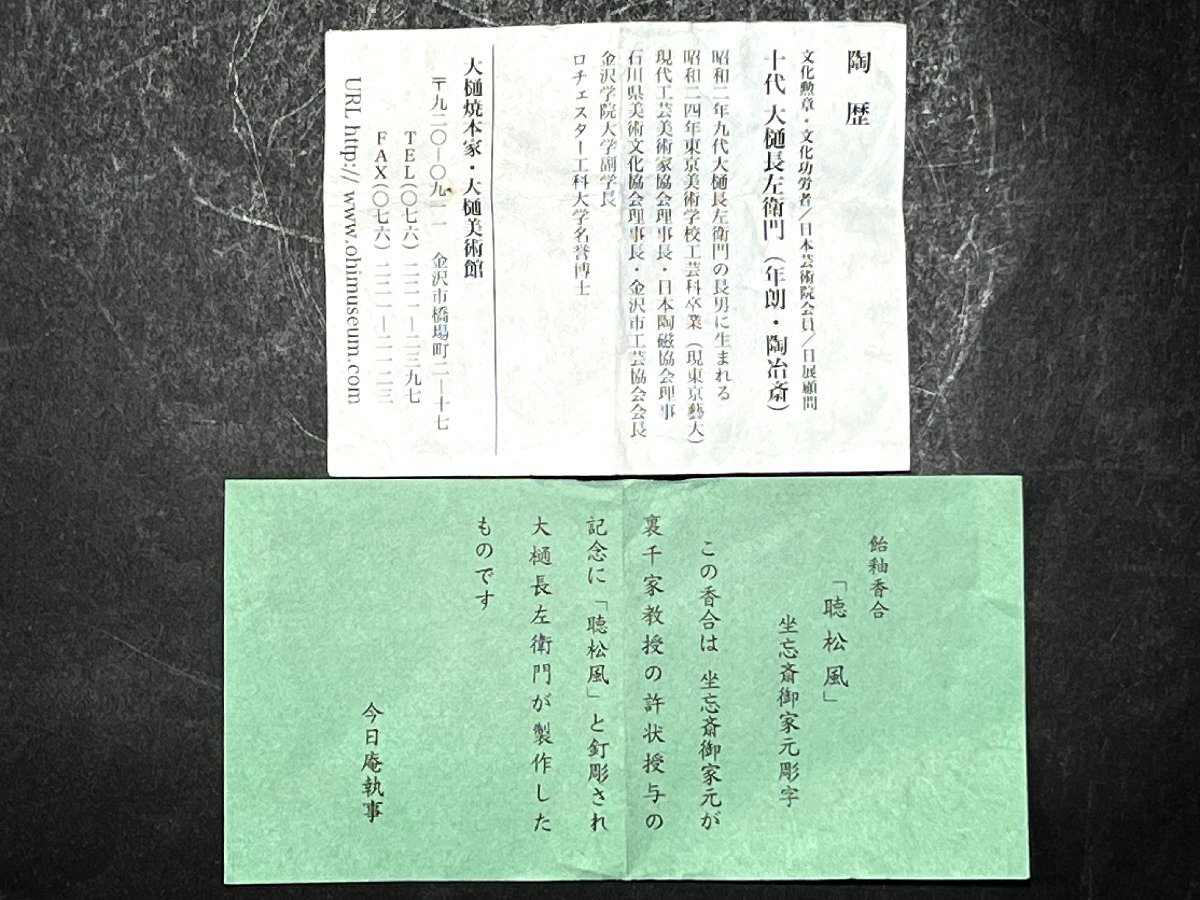 陶歴
文化勲章・文化功労者/日本芸術院会員/日展顧問
十代 大樋長左衛門(年朗・陶冶斎)
昭和二年九代大樋長左衛門の長男に生まれる
昭和二四年東京美術学校工芸科卒業(現東京藝大)
現代工芸美術家協会理事長・日本陶磁協会理事
石川県美術文化協会理事長・金沢市工芸協会会長
金沢学院大学副学長
ロチェスター工科大学名誉博士
大樋焼本家・大樋美術館
〒九二〇―〇九一一 金沢市橋場町二―十七
TEL(〇七六)二二一―二三九七
FAX(〇七六)二二一―二一二三
URL http:// www.ohimuseum.com
飴釉香合
「聴松風」
坐忘斎御家元彫字
この香合は 坐忘斎御家元が
裏千家教授の許状授与の
記念に「聴松風」と釘彫され
大樋長左衛門が製作した
ものです
今日庵執事